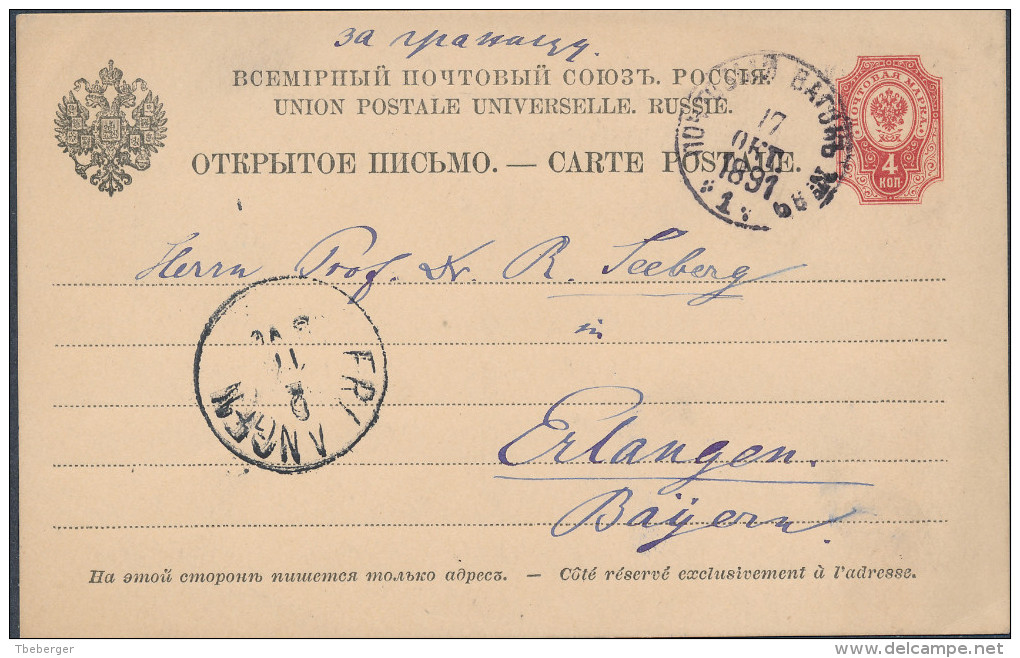 за границу.
ВСЕМІРНЫЙ ПОЧТОВЫЙ СОЮЗЪ. РОССІЯ.
UNION POSTALE UNIVERSELLE. RUSSIE.
ОТКРЫТОЕ ПИСЬМО. — CARTE POSTALE.
ПОЧТОВАЯ МАРКА
4
КОП.
ПОЧТОВЫЙ ВАГОНЪ №
17
ОКТ.
1891
1
Herrn Prof. Dr. R. Seeberg
in
ERLANGEN
Erlangen.
Bayern.
На этой сторонѣ пишется только адресъ. — Côté réservé exclusivement à l'adresse.
Tbeberger
delcampe.net